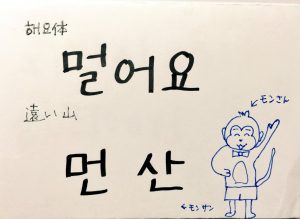 해요体
멀어요
遠い山
먼 산
←モンさん
←モンサン